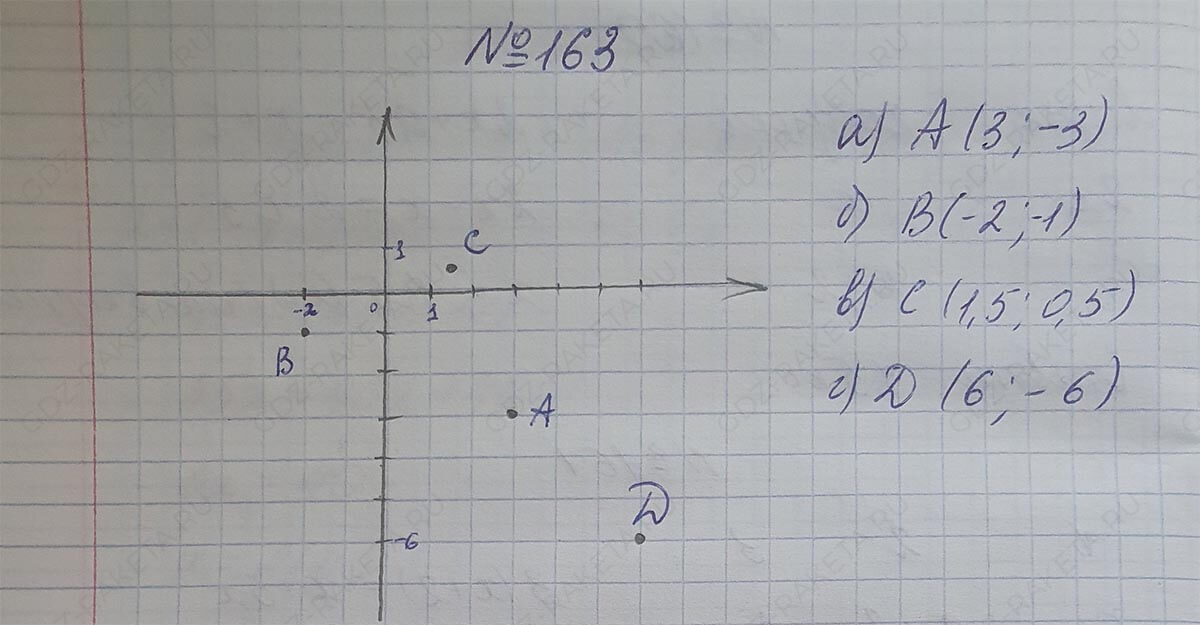 №163
а) A (3; -3)
б) B (-2; -1)
в) C (1,5; 0,5)
г) D (6; -6)
1
C
-2
0
1
B
A
D
-6
GDZ-RAKETA.RU